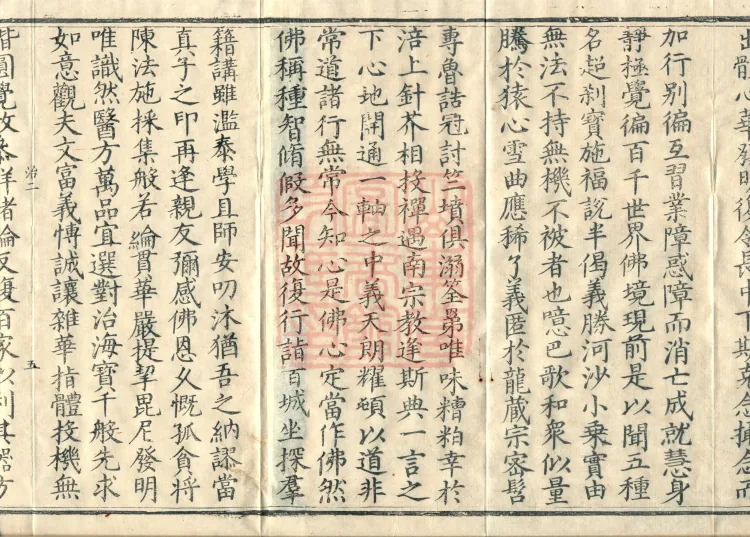 出體心華發明復令長中下期克念攝念而
加行別徧互習業障惑障而消亡成就慧身
靜極覺徧百千世界佛境現前是以聞五種
名超剎寶施福說半偈義勝河沙小乗實由
無法不持無機不被者也噫巴歌和衆似量
騰於猿心雪曲應稀了義匿於龍藏宗密髫
專魯誥冠討竺墳俱溺筌罤唯味糟粕幸於
涪上針芥相投禪遇南宗教逢斯典一言之
下心地開通一軸之中義天朗耀頓以道非
常道諸行無常今知心是佛心定當作佛然
佛稱種智脩假多聞故復行詣百城坐探羣
籍講雖濫泰學且師安叨沐猶吾之納謬當
真子之印再逢親友彌感佛恩久慨孤貧將
陳法施採集般若綸貫華嚴提挈毘尼發明
唯識然醫方萬品宜選對治海寶千般先求
如意觀夫文富義博誠讓雜華指體投機無
治二 五
偕圓覺故參詳諸論反復百家以利其器方